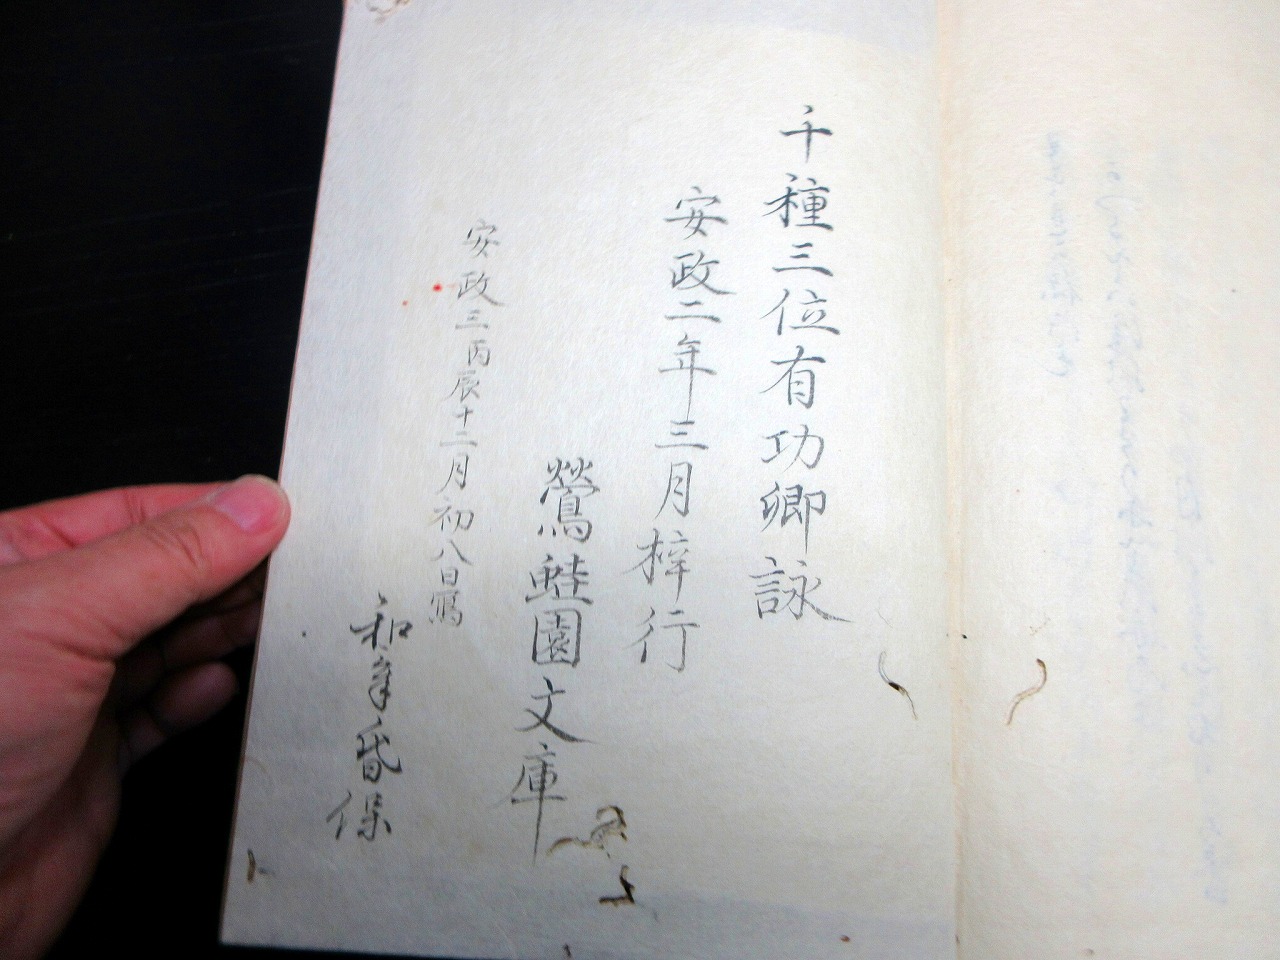 千種三位有功卿詠
安政二年三月梓行
鶯蛙園文庫
安政三丙辰十二月初八日寫
和
保